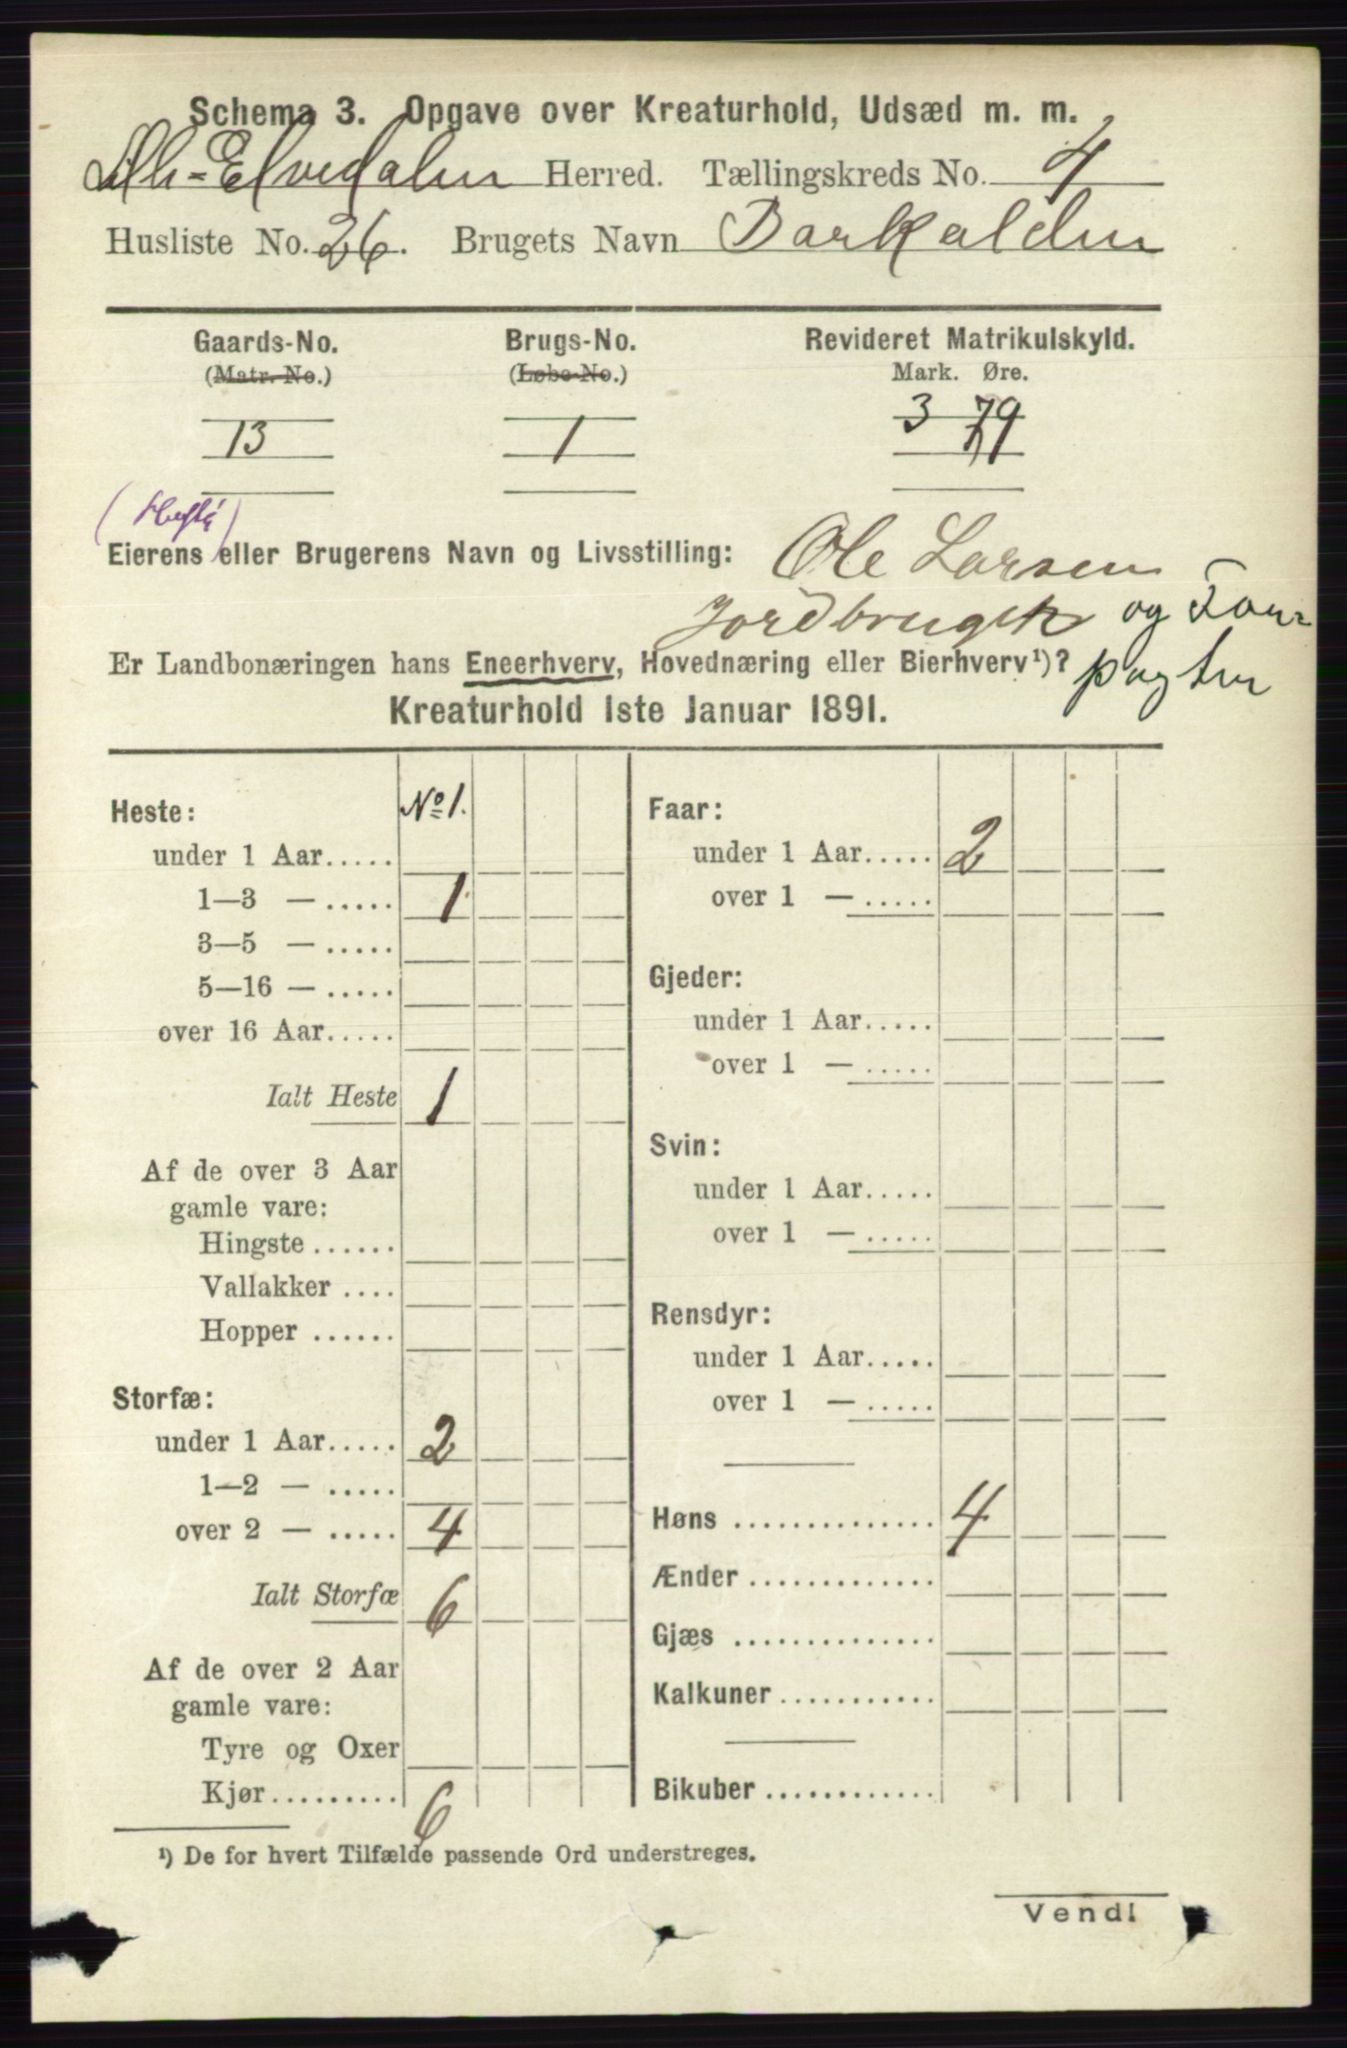 Schema 3. Opgave over Kreaturhold, Udsæd m. m.
Elvedalen Herred. Tællingskreds No. 4
Husliste No. 26. Brugets Navn Barkalden
Gaards-No. Brugs-No. Revideret Matrikulskyld.
(Matr. No.) (Løbe-No.) Mark. Øre.
13 1 3 79
Eierens eller Brugerens Navn og Livsstilling: Ole Larsen
Jordbruger og For-
pagter
Er Landbonæringen hans Eneerhverv, Hovednæring eller Bierhverv¹)?
Kreaturhold 1ste Januar 1891.
Heste: No 1.
under 1 Aar.....
1—3 — ..... 1
3—5 — .....
5—16 — .....
over 16 Aar.....
Ialt Heste 1
Af de over 3 Aar
gamle vare:
Hingste ......
Vallakker ....
Hopper ......
Storfæ:
under 1 Aar..... 2
1—2 — .....
over 2 — ..... 4
Ialt Storfæ 6
Af de over 2 Aar
gamle vare:
Tyre og Oxer
Kjør......... 6
Faar:
under 1 Aar..... 2
over 1 — .....
Gjeder:
under 1 Aar.....
over 1 — .....
Svin:
under 1 Aar.....
over 1 — .....
Rensdyr:
under 1 Aar.....
over 1 — .....
Høns .............. 4
Ænder .............
Gjæs ..............
Kalkuner ...........
Bikuber .............
¹) De for hvert Tilfælde passende Ord understreges.
Vend!